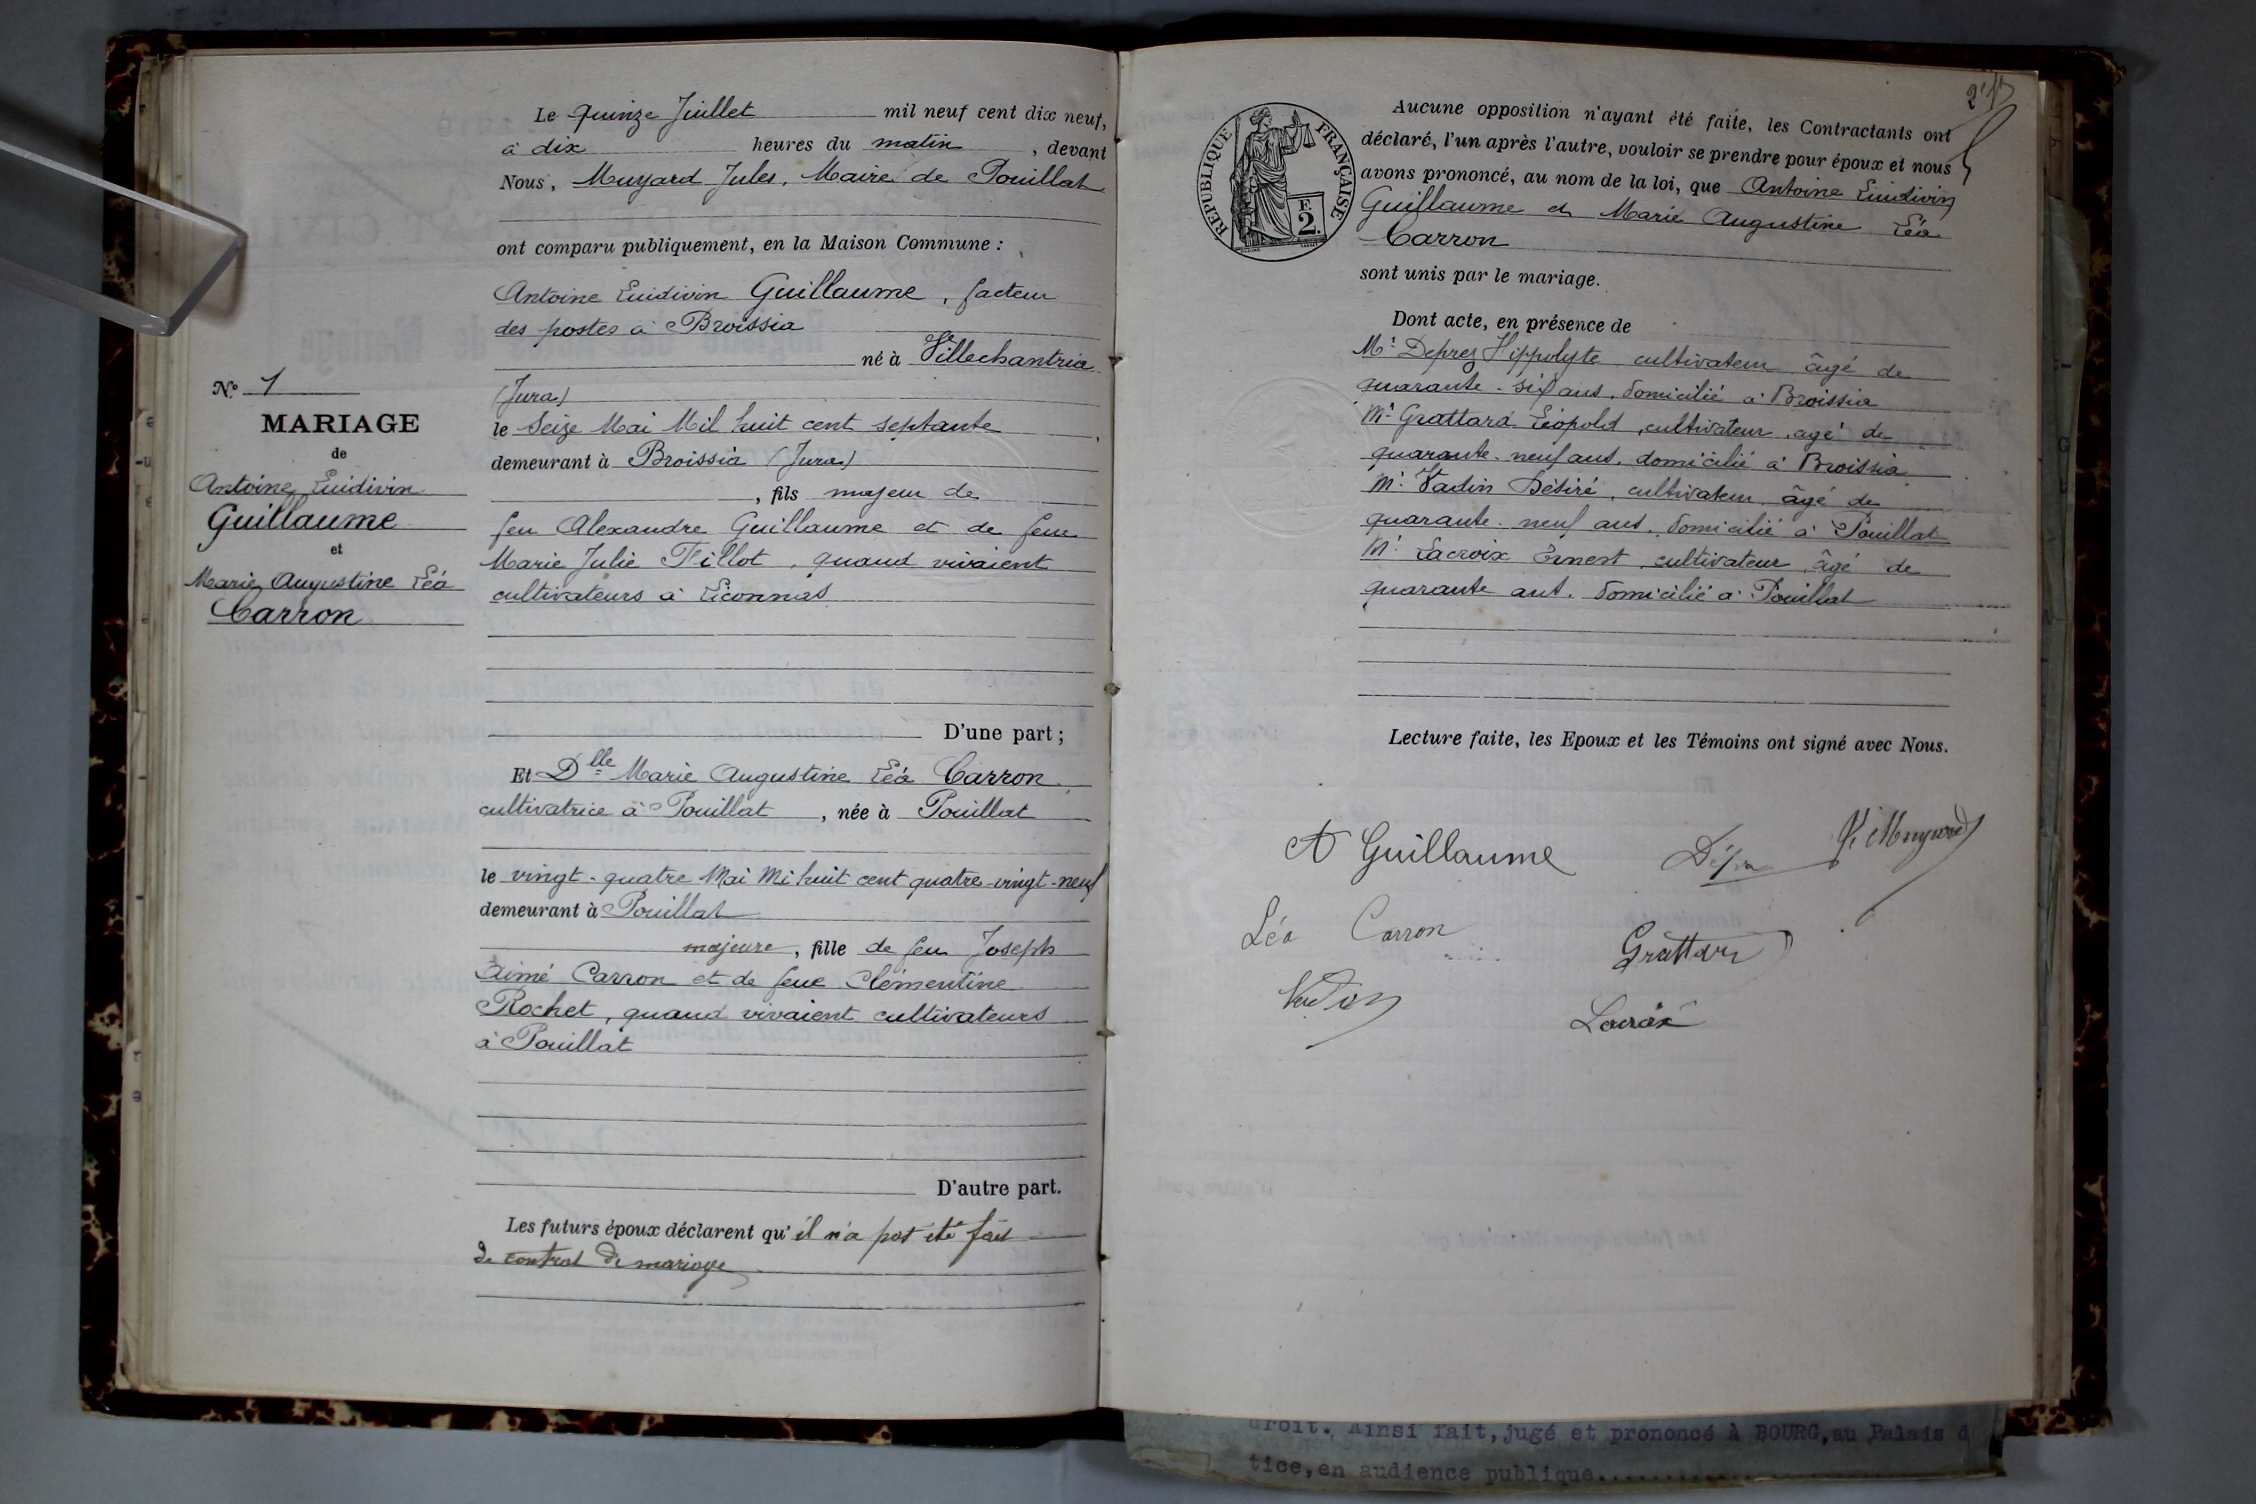 Le quinze Juillet mil neuf cent dix neuf,
à dix heures du matin, devant
Nous, Muyard Jules, Maire de Pouillat
ont comparu publiquement, en la Maison Commune :
Antoine Guillaume, facteur
des postes à Broissia
né à Villechantria
(Jura)
le Seize Mai Mil huit cent septante
demeurant à Broissia (Jura)
, fils majeur de
feu Alexandre Guillaume et de feue
Marie Julie Tillot, quand vivaient
cultivateurs à Liconnas
D'une part ;
Nº 1
MARIAGE
de
Antoine
Guillaume
et
Marie Augustine Léa
Carron
Et Dlle Marie Augustine Léa Carron
cultivatrice à Pouillat, née à Pouillat
le vingt-quatre Mai Mi huit cent quatre-vingt-neuf
demeurant à Pouillat
majeure, fille de feu Joseph
Aimé Carron et de feue Clémentine
Rochet, quand vivaient cultivateurs
à Pouillat
D'autre part.
Les futurs époux déclarent qu'il n'a pas été fait
de contrat de mariage
RÉPUBLIQUE FRANÇAISE
F.
2.
Aucune opposition n'ayant été faite, les Contractants ont
déclaré, l'un après l'autre, vouloir se prendre pour époux et nous
avons prononcé, au nom de la loi, que Antoine
Guillaume et Marie Augustine Léa
Carron
sont unis par le mariage.
Dont acte, en présence de
Mr Deprez Hippolyte cultivateur âgé de
quarante-six ans, domicilié à Broissia
Mr Grattard Léopold, cultivateur, agé de
quarante-neuf ans, domicilié à Broissia
Mr Vadin Désiré, cultivateur âgé de
quarante-neuf ans, domicilié à Pouillat
Mr Lacroix Ernest, cultivateur, âgé de
quarante ans, domicilié à Pouillat
Lecture faite, les Epoux et les Témoins ont signé avec Nous.
A Guillaume
J. Muyard
Léa Carron
Grattard
Vadin
Lacroix
droit. Ainsi fait, jugé et prononcé A BOURG, au Palais d
tice, en audience publique